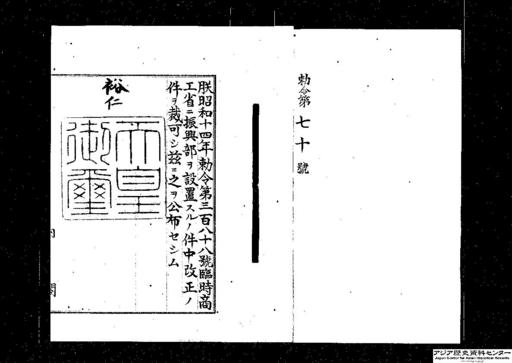 勅令第七十號
朕昭和十四年勅令第三百八十八號臨時商
工省ニ振興部ヲ設置スルノ件中改正ノ
件ヲ裁可シ茲ニ之ヲ公布セシム
裕仁
天皇
御璽
アジア歴史資料センター
Japan Center for Asian Historical Records